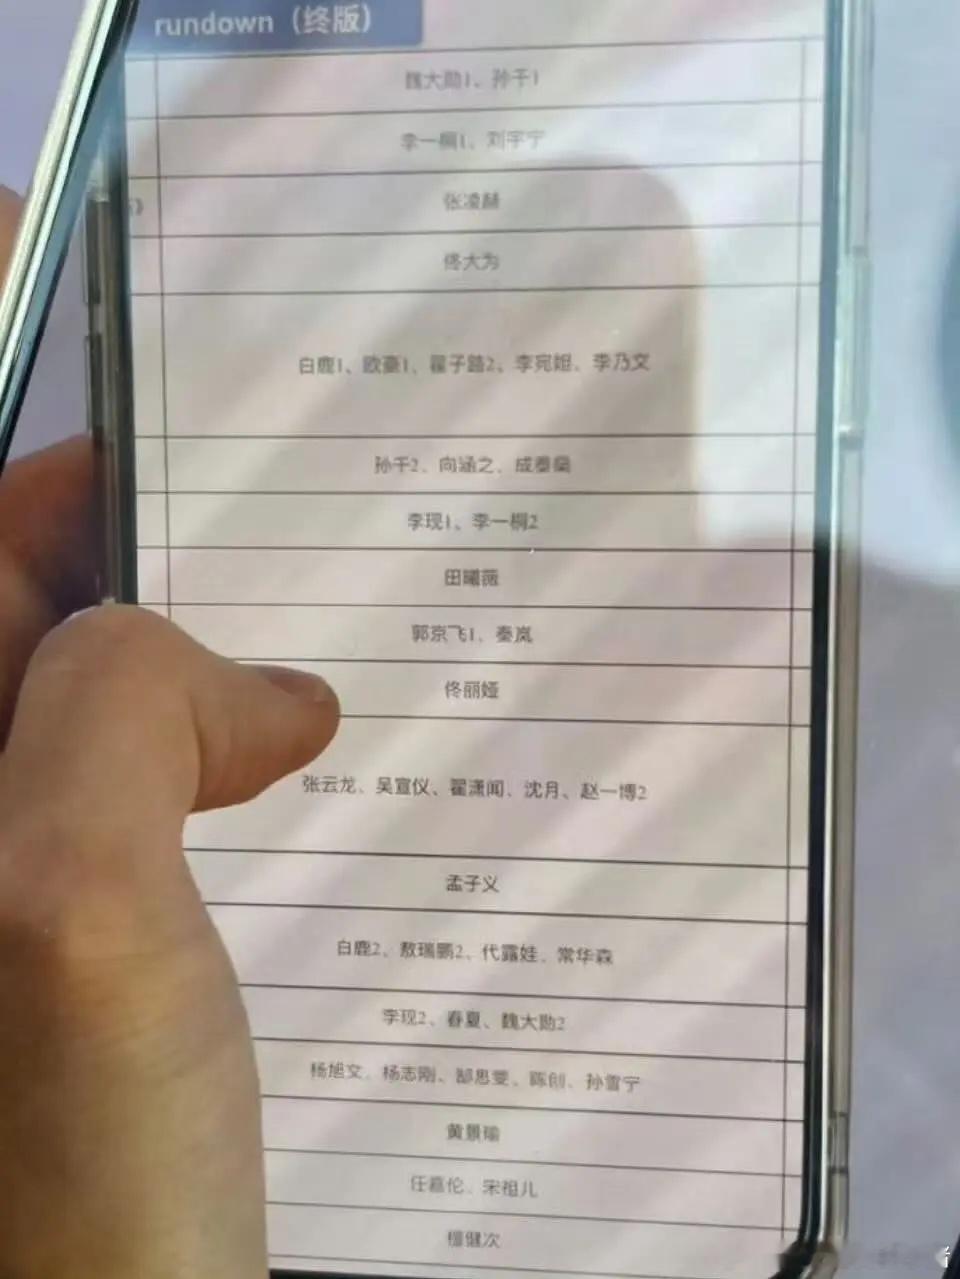 rundown（终版）
魏大勋1、孙千1
李一桐1、刘宇宁
》
张凌赫
佟大为
白鹿1、欧豪1、翟子路2、李宛妲、李乃文
孙千2、向涵之、成泰燊
李现1、李一桐2
田曦薇
郭京飞1、秦岚
佟丽娅
张云龙、吴宣仪、翟潇闻、沈月、赵一博2
孟子义
白鹿2、敖瑞鹏2、代露娃、常华森
李现2、春夏、魏大勋2
杨旭文、杨志刚、郜思雯、陈创、孙雪宁
黄景瑜
任嘉伦、宋祖儿
檀健次